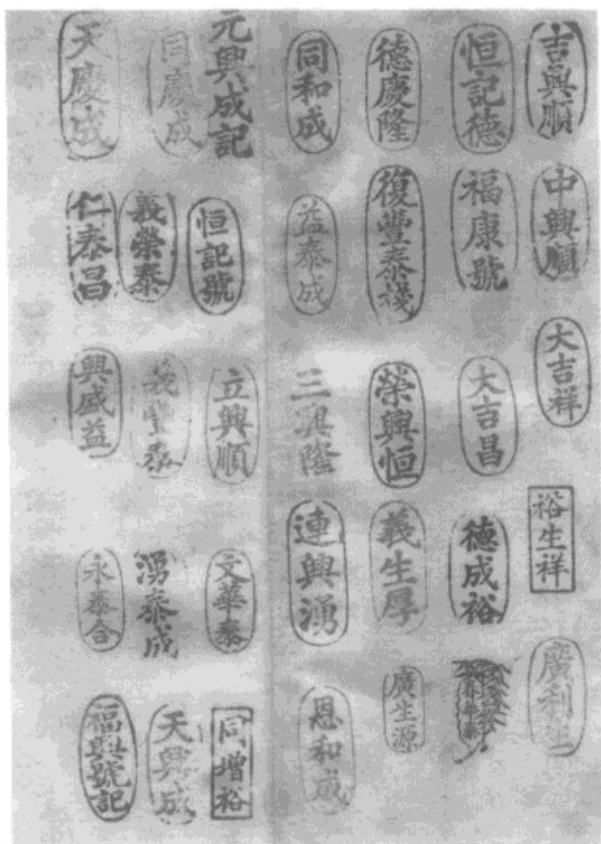 吉興順
中興順
大吉祥
裕生祥
廣利
恒記德
福康號
大吉昌
德成裕
德慶隆
復豐泰棧
榮興恒
義生厚
廣生源
同和成
益泰成
三興隆
連興湧
恩和成
元興成記
恒記號
立興順
文華泰
同增裕
同慶成
義榮泰
義豐泰
湧泰成
天興成
天慶成
仁泰昌
興盛益
永泰合
福興號記